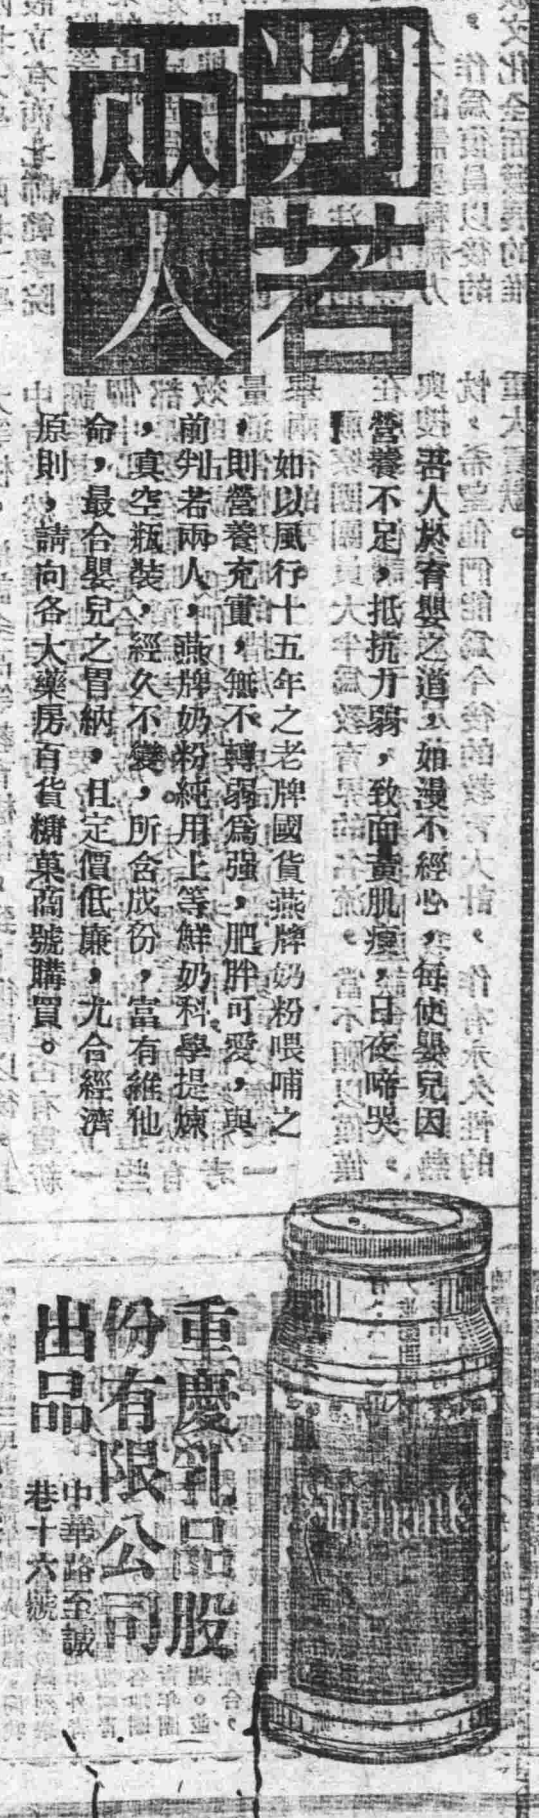 判若
兩人
吾人於育嬰之道，如漫不經心，每使嬰兒因
營養不足，抵抗力弱，致面黃肌瘦，日夜啼哭，
如以風行十五年之老牌國貨燕牌奶粉喂哺之
，則營養充實，無不轉弱爲强，肥胖可愛，與
前判若兩人，燕牌奶粉純用上等鮮奶科學提煉
，真空瓶裝，經久不變，所含成份，富有維他
命，最合嬰兒之胃納，且定價低廉，尤合經濟
原則，請向各大藥房百貨糖菓商號購買。
重慶乳品股
份有限公司
出品
中華路至誠
巷十六號